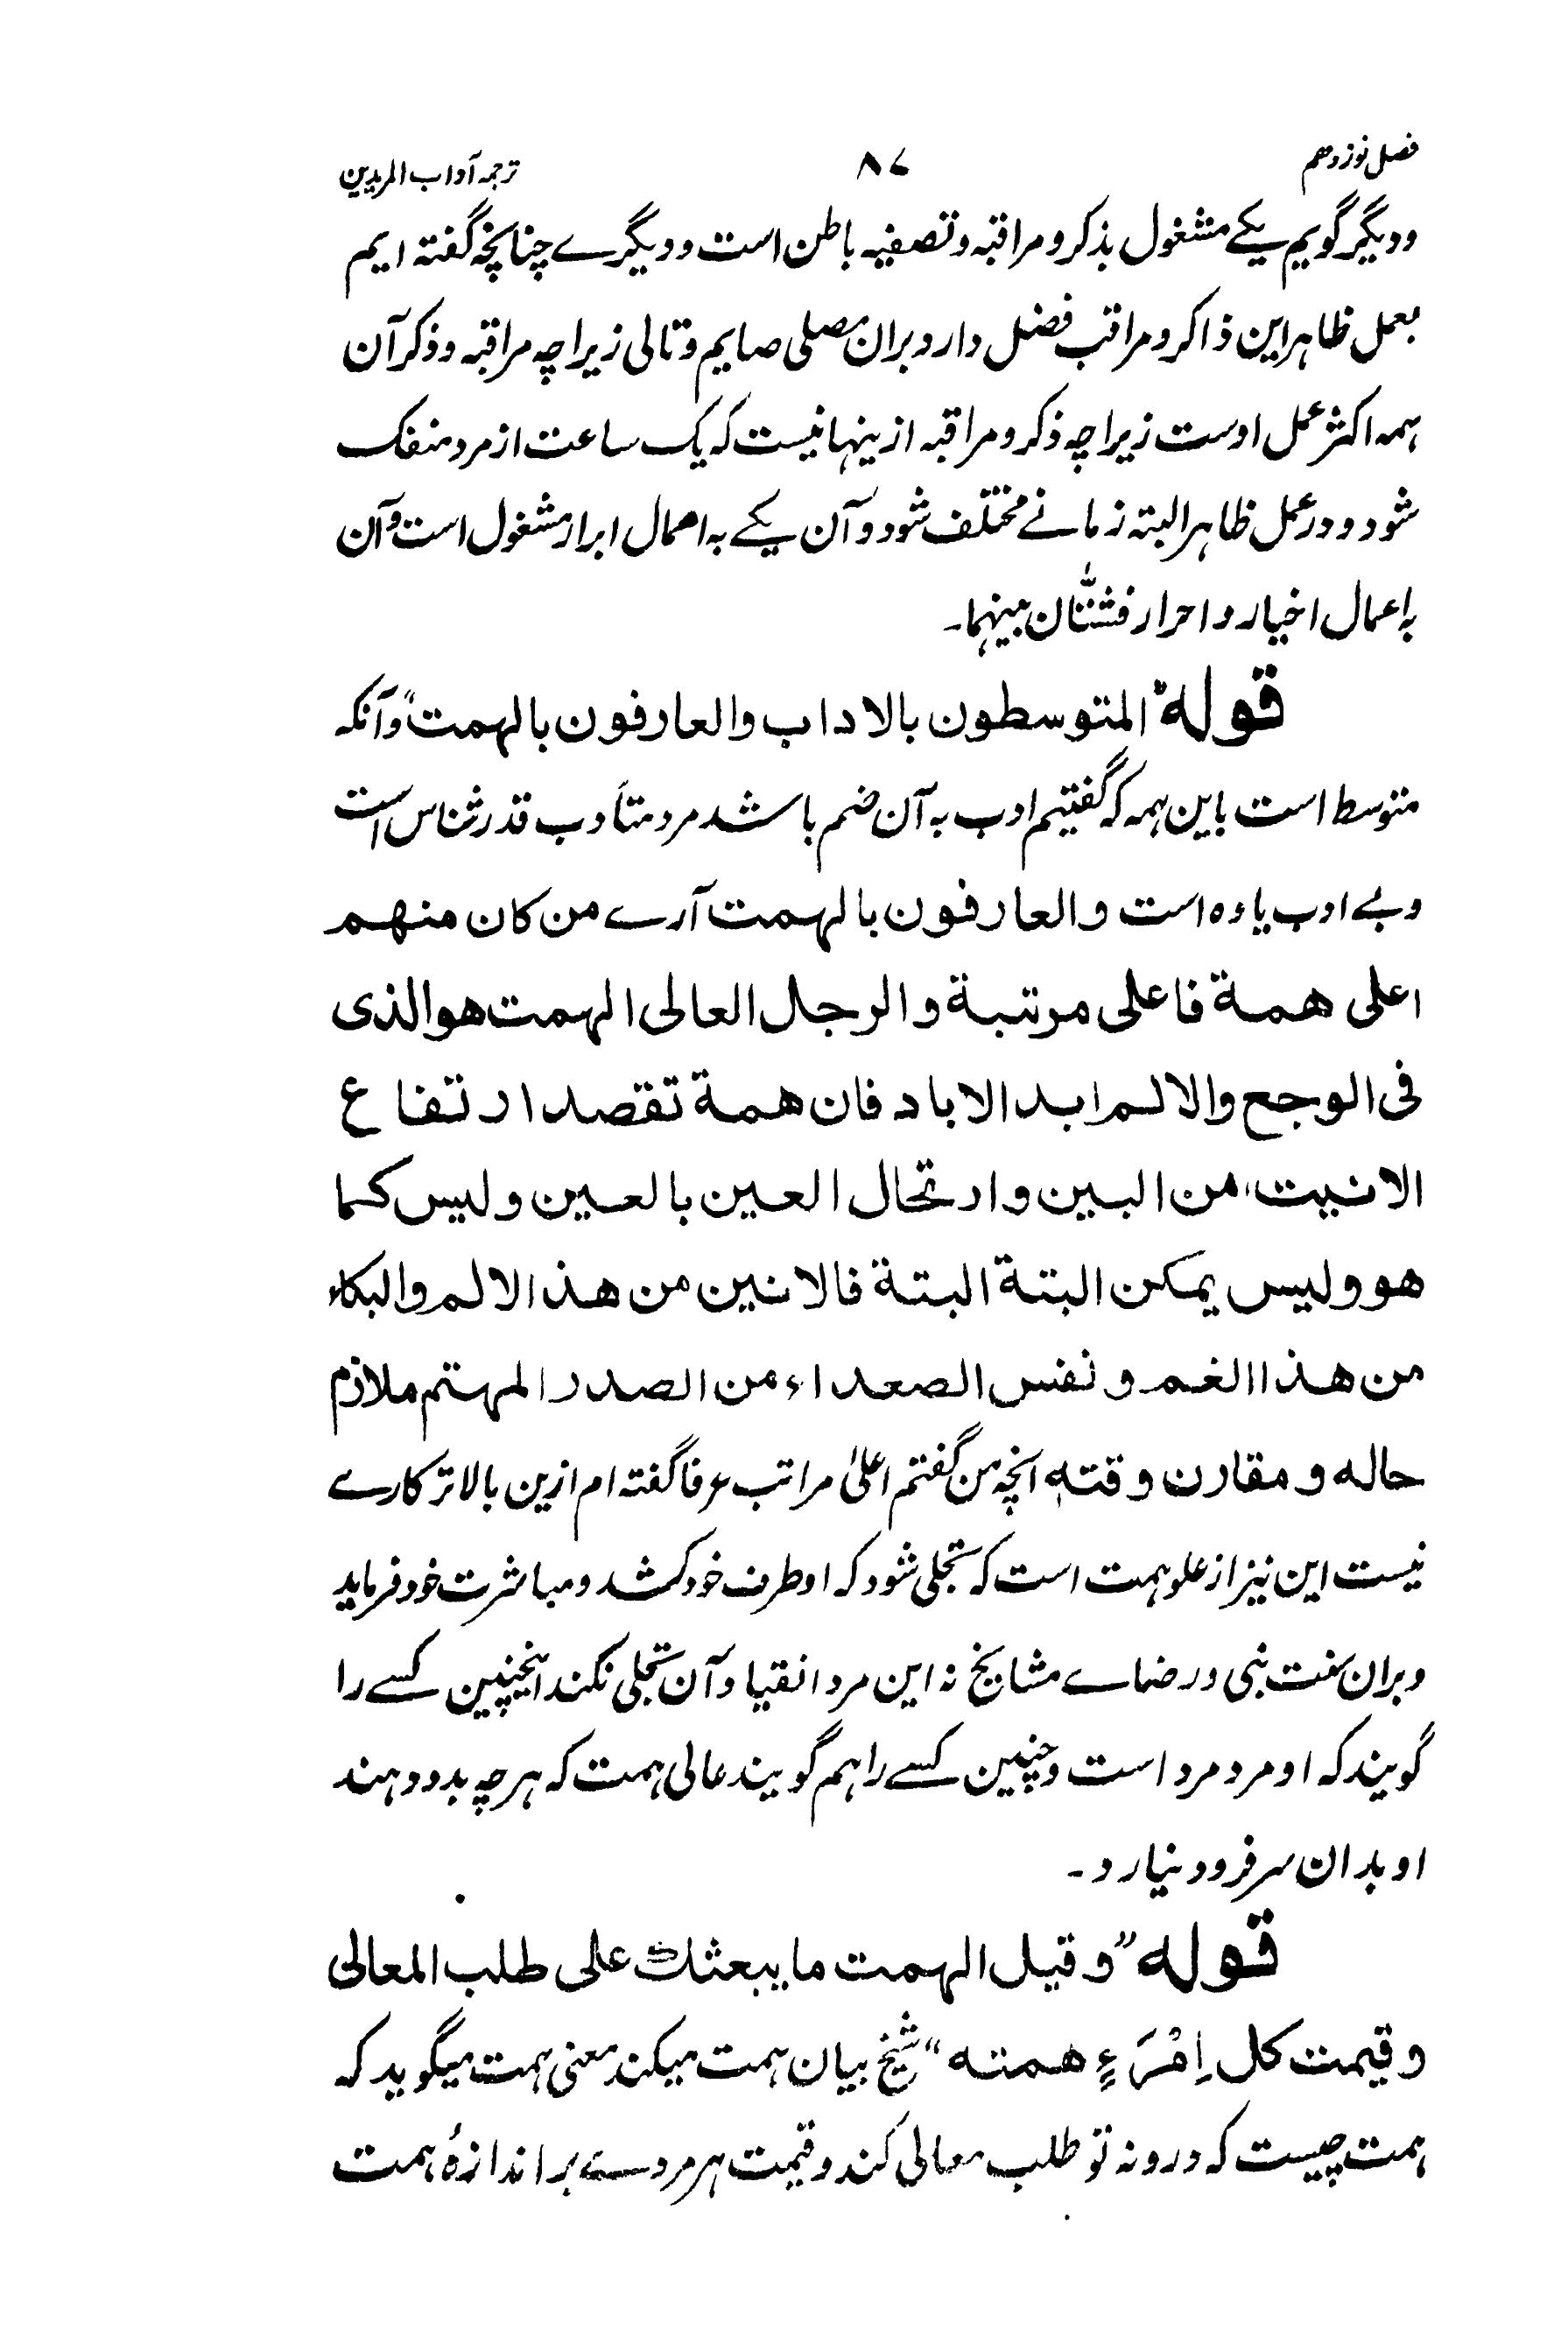 فصل نوزدهم ۸۷ ترجمہ آداب المریدین
و دیگر گویم یکے مشغول بذکر و مراقبہ و تصفیہ باطن است و دیگرے چنانچہ گفتہ ایم
بعمل ظاہر این ذاکر و مراقب فضل دارد بران مصلی صایم و تالی زیراچہ مراقبہ و ذکر آن
ہمہ اکثر عمل اوست زیراچہ ذکر و مراقبہ ازینہا نیست کہ یک ساعت از مرد منفک
شود و در عمل ظاہر البتہ زمانے مختلف شود و آن یکے بہ اعمال ابرار مشغول است و آن
بہ اعمال اخیار و احرار فشتّان بینہما۔
قولہ "المتوسطون بالاداب والعارفون بالہمت" و آنکہ
متوسط است باین ہمہ کہ گفتیم ادب بہ آن ضم باشد مرد متأدب قدر شناس است
و بے ادب یاوہ است والعارفون بالہمت آرے من کان منھم
اعلی ھمة فاعلی مرتبة و الرجال العالی الہمت ھو الذی
فی الوجع والالم ابد الاباد فان ھمة تقصد ارتفاع
الانیت من البین و ارتحال العین بالعین و لیس کما
ھو و لیس یمکن البتة البتة فالانین من ھذ الالم والبکاء
من ھذا الغم و نفس الصعداء من الصدر المہتم ملازم
حالہ و مقارن وقتہ انچہ من گفتم اعلیٰ مراتب عرفا گفتہ ام ازین بالاتر کارے
نیست این نیز از علو ہمت است کہ تجلی شود کہ او طرف خود کشد و مباشرت خود فرماید
و بران سنت نبی و رضاے مشایخ نہ این مرد انقیاد آن تجلی نکند اینچنین کسے را
گویند کہ او مرد مرد است و چنین کسے را ہم گویند عالی ہمت کہ ہرچہ بدو دہند
او بدان سر فرود نیارد۔
قولہ "و قیل الہمت ما یبعثک علی طلب المعالی
و قیمت کل اِمْرَءٍ ھمتہ" شیخ بیان ہمت میکند معنی ہمت میگوید کہ
ہمت چیست کہ درونہ تو طلب معالی کند و قیمت ہر مردے بر اندازۂ ہمت